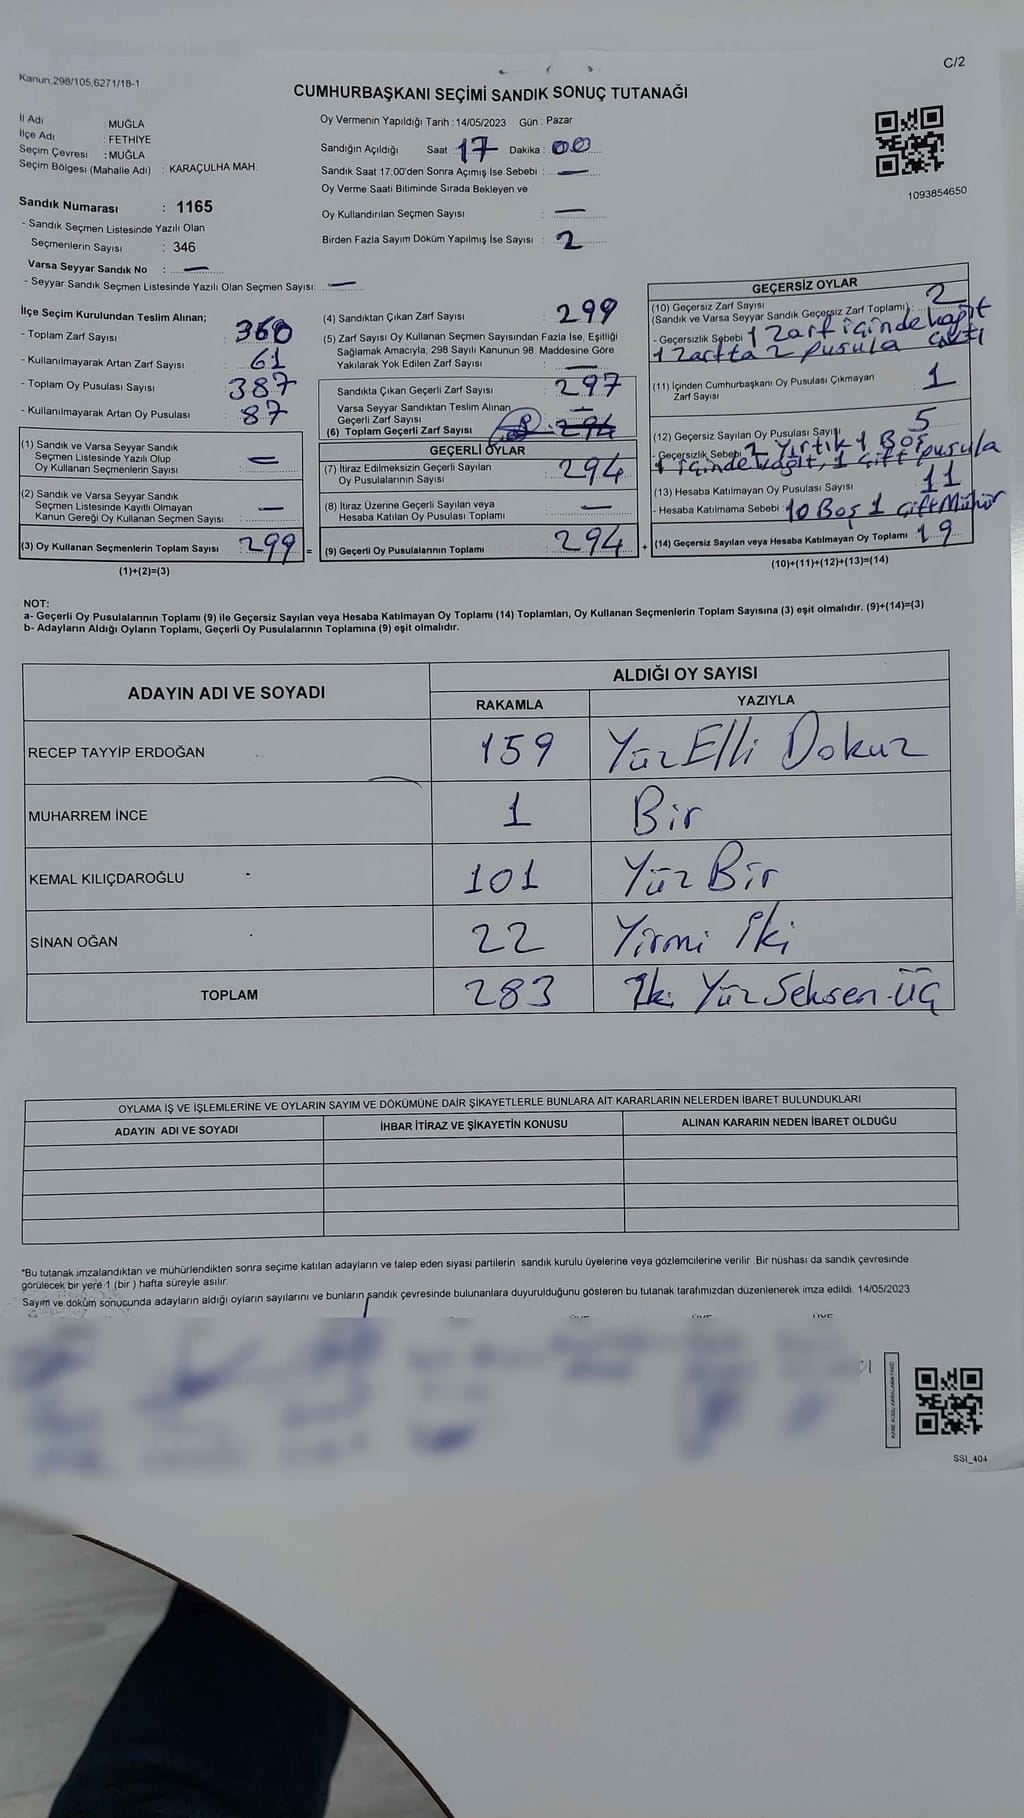 Kanun.298/105;6271/18-1
C/2
CUMHURBAŞKANI SEÇİMİ SANDIK SONUÇ TUTANAĞI
İl Adı : MUĞLA
İlçe Adı : FETHİYE
Seçim Çevresi : MUĞLA
Seçim Bölgesi (Mahalle Adı) : KARAÇULHA MAH.
Sandık Numarası : 1165
- Sandık Seçmen Listesinde Yazılı Olan
Seçmenlerin Sayısı : 346
Varsa Seyyar Sandık No : —
- Seyyar Sandık Seçmen Listesinde Yazılı Olan Seçmen Sayısı: —
Oy Vermenin Yapıldığı Tarih : 14/05/2023 Gün : Pazar
Sandığın Açıldığı Saat : 17 Dakika : 00
Sandık Saat 17:00'den Sonra Açımış İse Sebebi : —
Oy Verme Saati Bitiminde Sırada Bekleyen ve
Oy Kullandırılan Seçmen Sayısı : —
Birden Fazla Sayım Döküm Yapılmış İse Sayısı : 2
1093854650
İlçe Seçim Kurulundan Teslim Alınan;
- Toplam Zarf Sayısı : 360
- Kullanılmayarak Artan Zarf Sayısı : 61
- Toplam Oy Pusulası Sayısı : 387
- Kullanılmayarak Artan Oy Pusulası : 87
(1) Sandık ve Varsa Seyyar Sandık
Seçmen Listesinde Yazılı Olup
Oy Kullanan Seçmenlerin Sayısı : —
(2) Sandık ve Varsa Seyyar Sandık
Seçmen Listesinde Kayıtlı Olmayan
Kanun Gereği Oy Kullanan Seçmen Sayısı : —
(3) Oy Kullanan Seçmenlerin Toplam Sayısı : 299 =
(1)+(2)=(3)
(4) Sandıktan Çıkan Zarf Sayısı : 299
(5) Zarf Sayısı Oy Kullanan Seçmen Sayısından Fazla İse, Eşitliği
Sağlamak Amacıyla; 298 Sayılı Kanunun 98. Maddesine Göre
Yakılarak Yok Edilen Zarf Sayısı : —
Sandıkta Çıkan Geçerli Zarf Sayısı : 297
Varsa Seyyar Sandıktan Teslim Alınan
Geçerli Zarf Sayısı : —
(6) Toplam Geçerli Zarf Sayısı : 294
GEÇERLİ OYLAR
(7) İtiraz Edilmeksizin Geçerli Sayılan
Oy Pusulalarının Sayısı : 294
(8) İtiraz Üzerine Geçerli Sayılan veya
Hesaba Katılan Oy Pusulası Toplamı : —
(9) Geçerli Oy Pusulalarının Toplamı : 294 +
GEÇERSİZ OYLAR
(10) Geçersiz Zarf Sayısı
(Sandık ve Varsa Seyyar Sandık Geçersiz Zarf Toplamı) : 2
- Geçersizlik Sebebi 1 Zarf içinde kağıt
1 Zarfta 2 pusula çıktı
(11) İçinden Cumhurbaşkanı Oy Pusulası Çıkmayan
Zarf Sayısı 1
(12) Geçersiz Sayılan Oy Pusulası Sayısı 5
- Geçersizlik Sebebi 2 Yırtık 1 Boş
1 içinde kağıt, 1 çift pusula
(13) Hesaba Katılmayan Oy Pusulası Sayısı 11
- Hesaba Katılmama Sebebi : 10 Boş 1 çift Mühür
(14) Geçersiz Sayılan veya Hesaba Katılmayan Oy Toplamı : 19
(10)+(11)+(12)+(13)=(14)
NOT:
a- Geçerli Oy Pusulalarının Toplamı (9) ile Geçersiz Sayılan veya Hesaba Katılmayan Oy Toplamı (14) Toplamları, Oy Kullanan Seçmenlerin Toplam Sayısına (3) eşit olmalıdır. (9)+(14)=(3)
b- Adayların Aldığı Oyların Toplamı, Geçerli Oy Pusulalarının Toplamına (9) eşit olmalıdır.
ADAYIN ADI VE SOYADI
ALDIĞI OY SAYISI
RAKAMLA YAZIYLA
RECEP TAYYİP ERDOĞAN 159 Yüz Elli Dokuz
MUHARREM İNCE 1 Bir
KEMAL KILIÇDAROĞLU 101 Yüz Bir
SİNAN OĞAN 22 Yirmi İki
TOPLAM 283 İki Yüz Seksen-Üç
OYLAMA İŞ VE İŞLEMLERİNE VE OYLARIN SAYIM VE DÖKÜMÜNE DAİR ŞİKAYETLERLE BUNLARA AİT KARARLARIN NELERDEN İBARET BULUNDUKLARI
ADAYIN ADI VE SOYADI İHBAR İTİRAZ VE ŞİKAYETİN KONUSU ALINAN KARARIN NEDEN İBARET OLDUĞU
*Bu tutanak imzalandıktan ve mühürlendikten sonra seçime katılan adayların ve talep eden siyasi partilerin sandık kurulu üyelerine veya gözlemcilerine verilir. Bir nüshası da sandık çevresinde
görülecek bir yere 1 (bir ) hafta süreyle asılır.
Sayım ve döküm sonucunda adayların aldığı oyların sayılarını ve bunların sandık çevresinde bulunanlara duyurulduğunu gösteren bu tutanak tarafımızdan düzenlenerek imza edildi. 14/05/2023
SSI_404